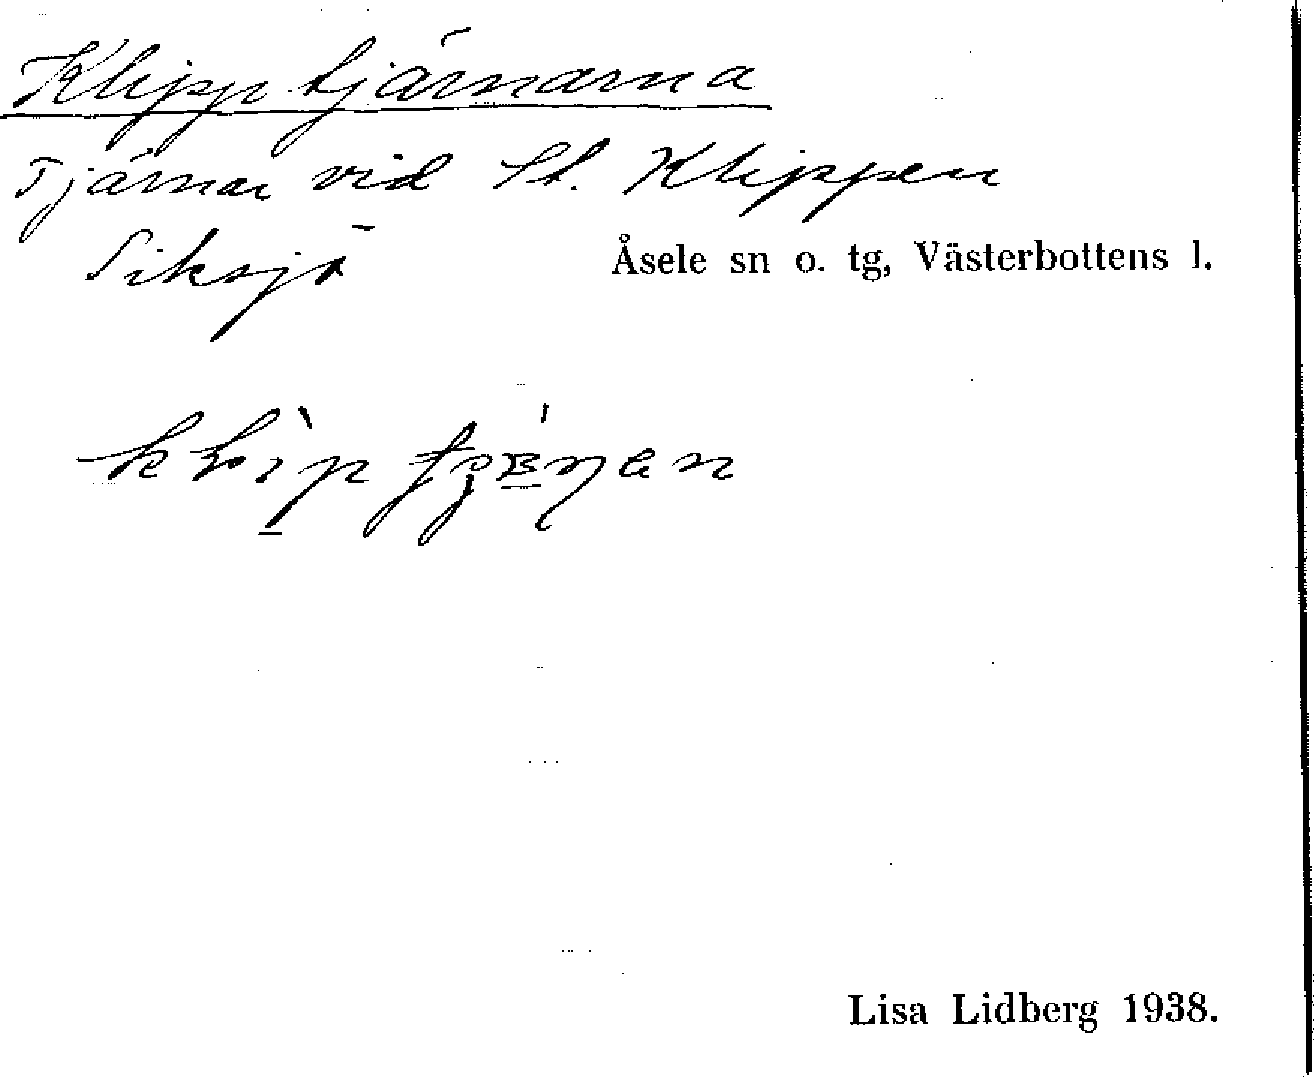 Klipptjärnarna
Tjärnar vid St. Klippen
Siksjö
Åsele sn o. tg, Västerbottens l.
Lisa Lidberg 1938.